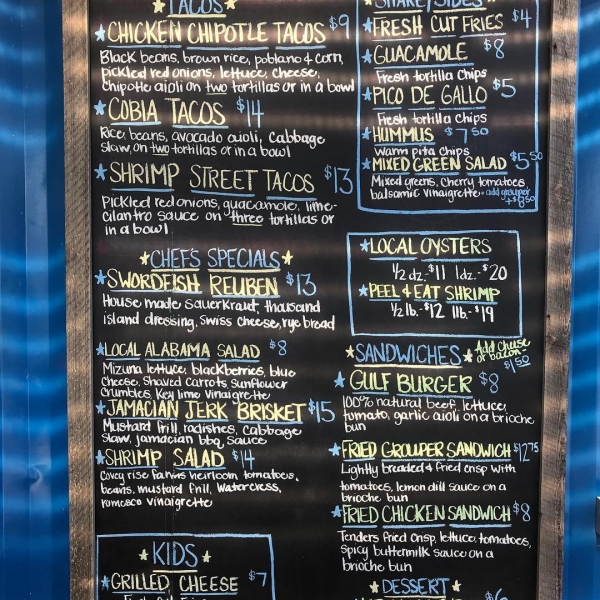 TACOS
CHICKEN CHIPOTLE TACOS $9
Black beans, brown rice, poblano & corn,
pickled red onions, lettuce, cheese,
Chipotle aioli on two tortillas or in a bowl
COBIA TACOS $14
Rice, beans, avocado aioli, Cabbage
slaw, on two tortillas or in a bowl
SHRIMP STREET TACOS $13
Pickled red onions, guacamole, lime-
cilantro sauce on three tortillas or
in a bowl
CHEFS SPECIALS
SWORDFISH REUBEN $13
House made sauerkraut, thousand
island dressing, Swiss cheese, rye bread
LOCAL ALABAMA SALAD $8
Mizuna lettuce, blackberries, blue
cheese, shaved carrots, sunflower
crumbles, Key lime Vinaigrette
JAMACIAN JERK BRISKET $15
Mustard frill, radishes, Cabbage
slaw, jamacian bbq sauce
SHRIMP SALAD $14
Covey rise farms heirloom tomatoes,
beans, mustard frill, watercress,
romesco vinaigrette
KIDS
GRILLED CHEESE $7
SHARE/SIDES
FRESH CUT FRIES $4
GUACAMOLE $8
Fresh tortilla chips
PICO DE GALLO $5
Fresh tortilla chips
HUMMUS $7.50
warm pita chips
MIXED GREEN SALAD $5.50
Mixed greens, cherry tomatoes,
balsamic vinaigrette. add grouper
+$8.50
LOCAL OYSTERS
1/2 dz.-$11 1dz.-$20
PEEL & EAT SHRIMP
1/2 lb.-$12 1lb.-$19
SANDWICHES Add cheese
or bacon
$1.50
GULF BURGER $8
100% natural beef, lettuce,
tomato, garlic aioli on a brioche
bun
FRIED GROUPER SANDWICH $12.75
Lightly breaded & fried crisp with
tomatoes, lemon dill sauce on a
brioche bun
FRIED CHICKEN SANDWICH $8
Tenders fried crisp, lettuce, tomatoes,
spicy buttermilk sauce on a
brioche bun
DESSERT
$6